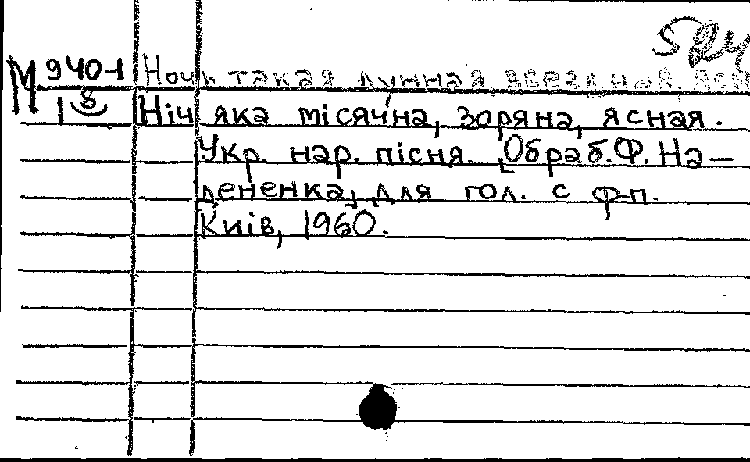 524
М 940-1 Ночь такая лунная звездная ясн
18 Ніч яка місячна, зоряна, ясная.
Укр. нар. пісня. [Обраб. Ф. На-
дененка, для гол. с ф-п.
Київ, 1960.